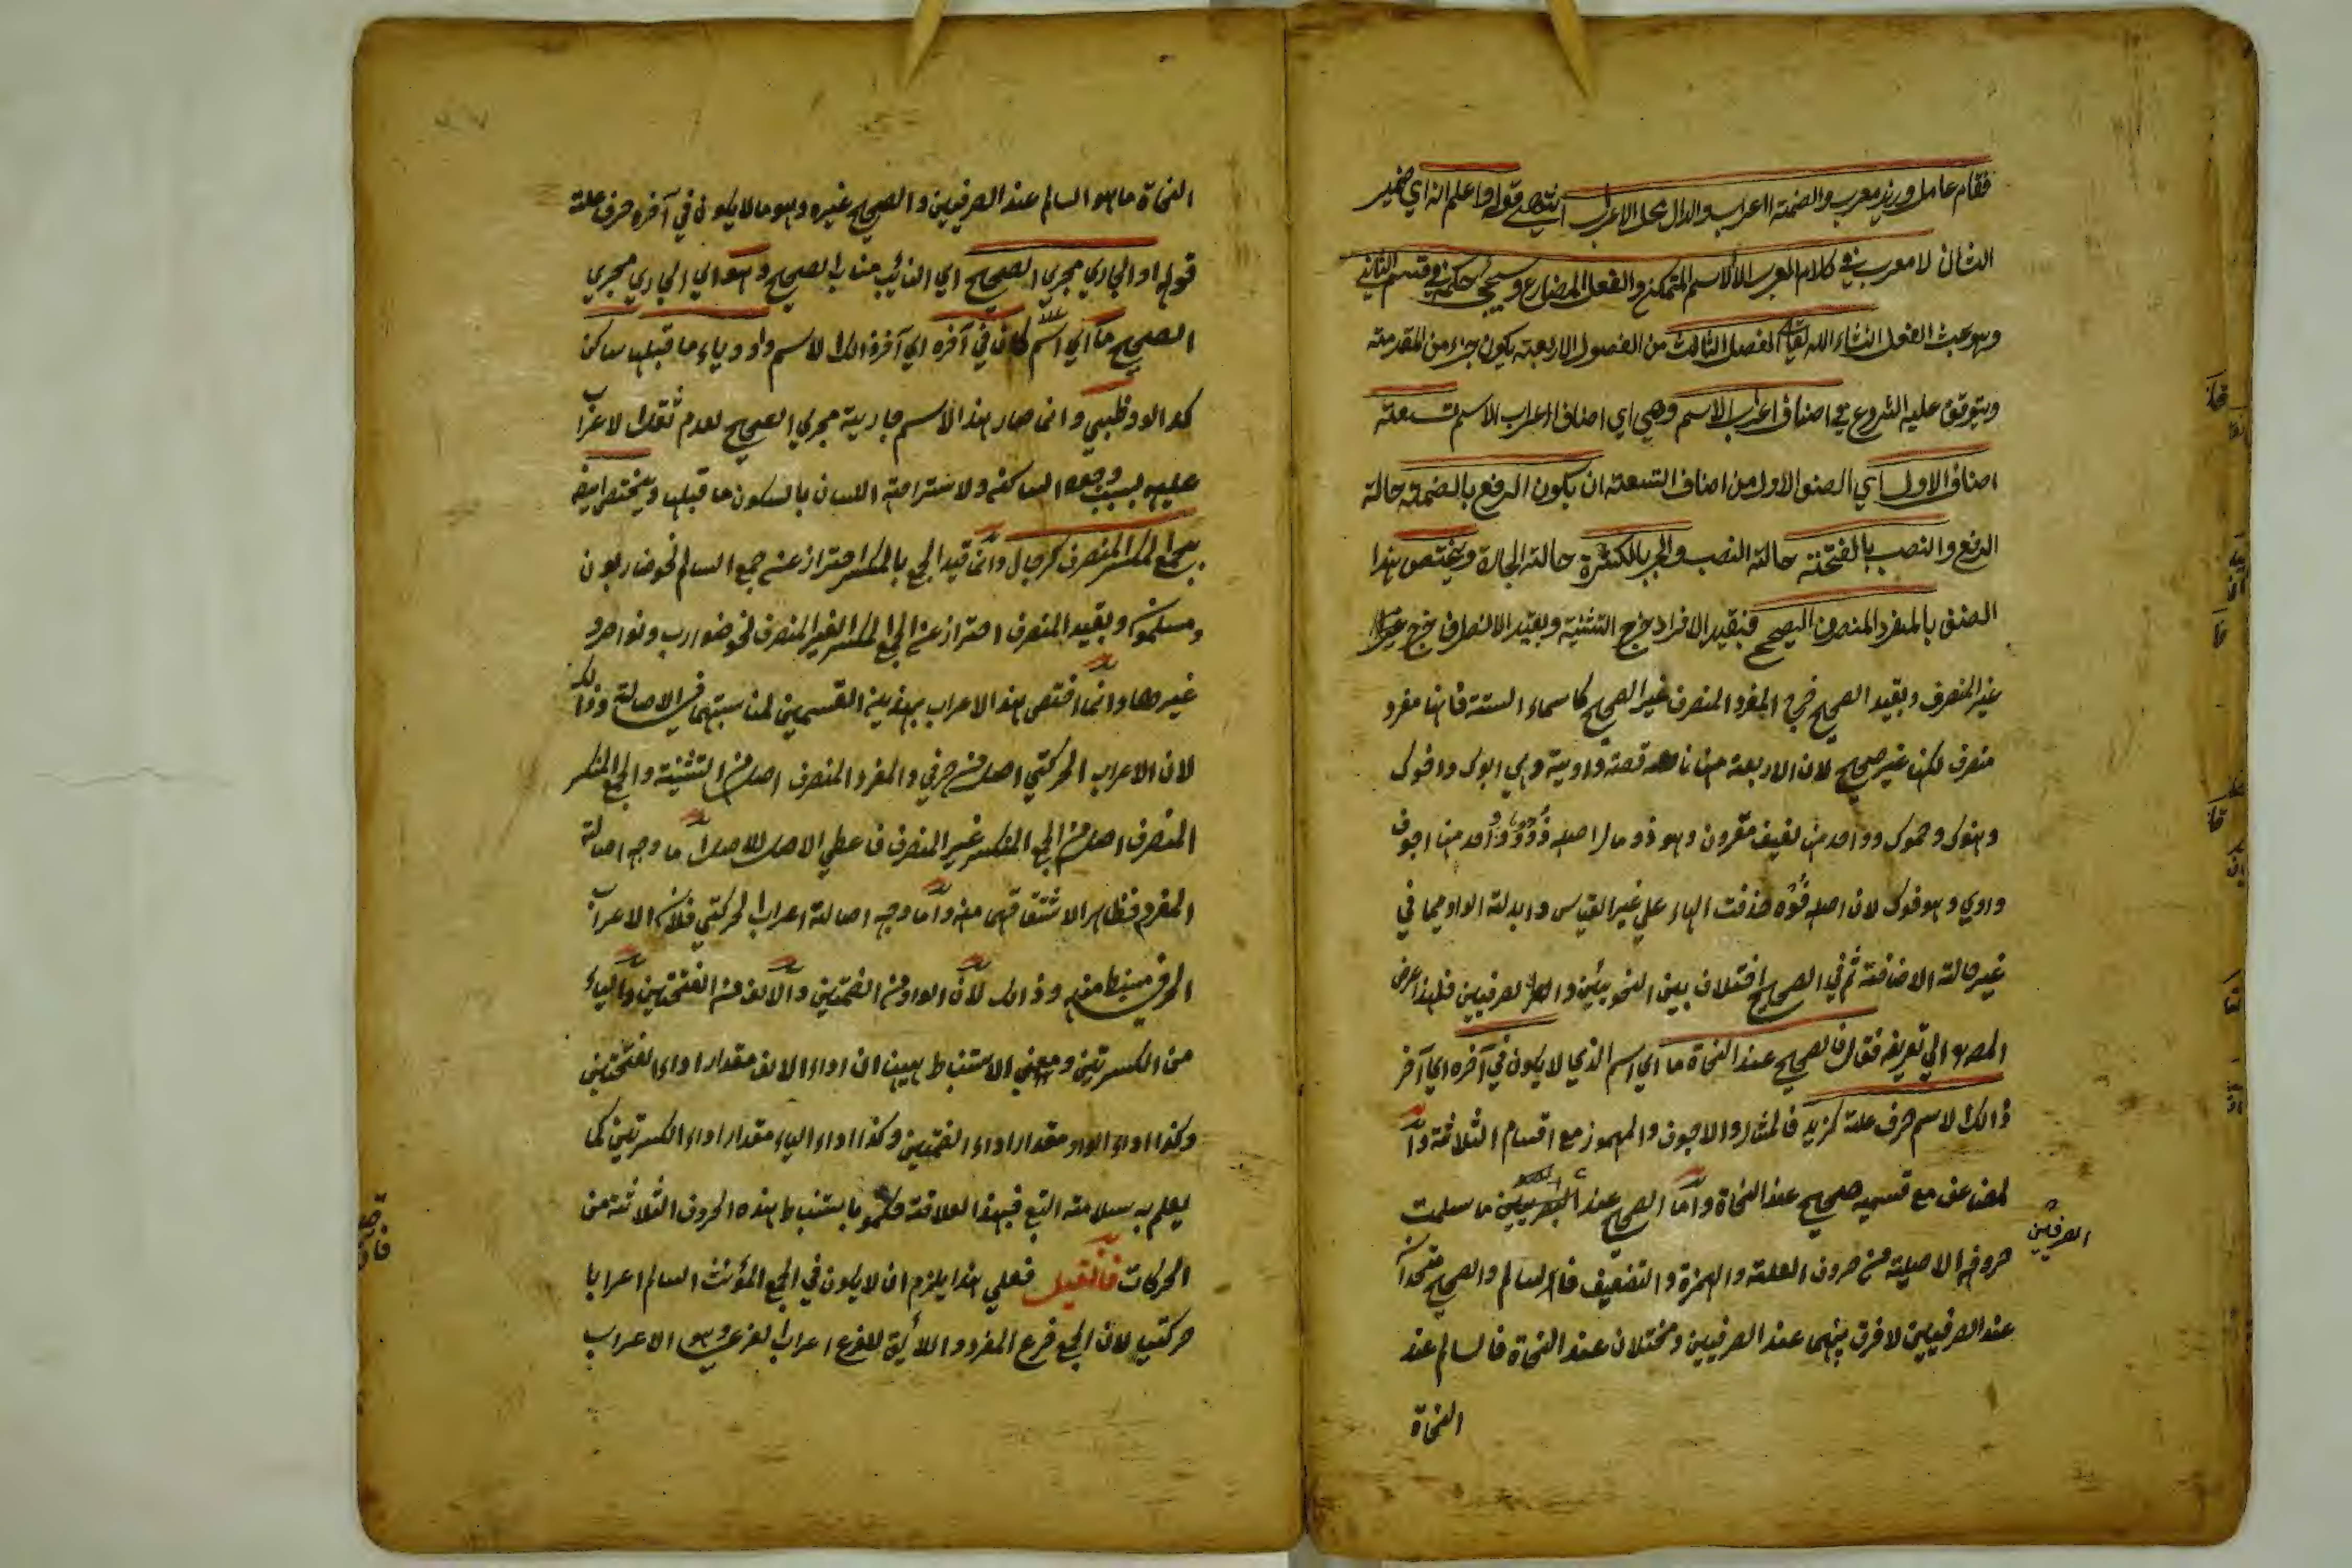 فقام عامل وزيد معرب والضمة اعراب والدال محل الاعراب انتهي قوله واعلم انه اي ضمير
الشان لا معرب في كلام العرب الا الاسم المتمكن والفعل المضارع وسيجئ حكمه في قسم الثاني
وهو بحث الفعل انشاء الله تعالي الفصل الثالث من الفصول الاربعة يكون جزء من المقدمة
ويتوقف عليه الشروع في اصناف اعراب الاسم وهي اي اصناف اعراب الاسم تسعة
اصناف الاول اي الصنف الاول من اصناف التسعة ان يكون الرفع بالضمة حالة
الرفع والنصب بالفتحة حالة النصب والجر بالكسرة حالة الجارة ويختص بهذا
الصنف بالمفرد المنصرف الصحيح فبقيد الافراد خرج التثنية وبقيد الانصراف خرج
غير المنصرف وبقيد الصحيح خرج المفرد المنصرف غير الصحيح كاسماء الستة فانها مفرد
منصرف لكنها غير صحيح لان الاربعة منها ناقصة واوية وهي ابوك واخوك
وهنوك وحموك وواحد منها لفيف مقرون وهو ذو مال اصله ذوو وواحد منها اجوف
واوي وهو فوك لان اصله فوه حذفت الهاء علي غير القياس وابدلة الواو ميما في
غير حالة الاضافة ثم في الصحيح اختلاف بين النحويين والصرفيين فلهذا اعرض
المصه الي تعريفه فقال فالصحيح عند النحاة ما اي اسم الذي لا يكون في آخره اي آخر
ذالك الاسم حرف علة كزيد فالمثال والاجوف والمهموز مع اقسام الثلاثة وا
لمضاعف مع قسميه صحيح عند النحاة واما الصحيح عند ما سلمت
الصرفيين
حروفه الاصلية من حروف العلة والهمزة والتضعيف فالسالم والصحيح متحدان
عند الصرفيين لا فرق بينهما عند الصرفيين ومختلان عند النحاة فالسالم عند
النحاة
النحاة ما هو السالم عند الصرفيين والصحيح غيره وهو ما لا يكون في آخره حرف علة
قوله او الجاري مجري الصحيح اي النائب مناب الصحيح وهو اي الجاري مجري
الصحيح ما اي اسم كان في آخره اي آخر ذالك الاسم واو وياء ما قبلها ساكن
كدالو وظبي وانما صار هذا الاسم جارية مجري الصحيح لعدم ثقل الاعراب
عليه بسبب الساكنه ولاستراحة اللسان بالسكون ما قبلها ويختص ايضا
بجمع المكسر المنصرف كرجال وانما قيد الجمع بالمكسر احتراز عنه جمع السالم نحو ضاربون
ومسلمون وبقيد المنصرف احتراز عنه الجمع المكسر الغير المنصرف نحو ضوارب ونواصر و
غيرهما وانما اختص هذا الاعراب بهذين القسمين لمناسبتهما في الاصالة وذالك
لان الاعراب الحركتي اصل من حرفي والمفرد المنصرف اصل من التثنية والجمع المكسر
المنصرف اصل من الجمع المكسر غير المنصرف فاعطي الاصل للاصل اما وجه اصالة
المفرد فظاهر لاشتقاقهما منه واما وجه اصالة اعراب الحركتي فلان الاعراب
الحرفي مستنبط منه وذالك لان الواو من الضمتين والالف من الفتحتين والياء
من الكسرتين ومعني الاستنباط ههنا ان اداء الالف مقدار اداء الفتحتين
وكذا اداء الواو مقدار اداء الضمتين وكذا اداء الياء مقدار اداء الكسرتين كما
يعلم به سلامة التبع فبهذا العلاقة حكموا باستنباط هذه الحروف الثلاثة من
الحركات فان قيل فعلي هذا يلزم ان لا يكون في الجمع المؤنث السالم اعرابا
حركتيا لان الجمع فرع المفرد واللايق للفرع اعراب الفرعي وهو الاعراب